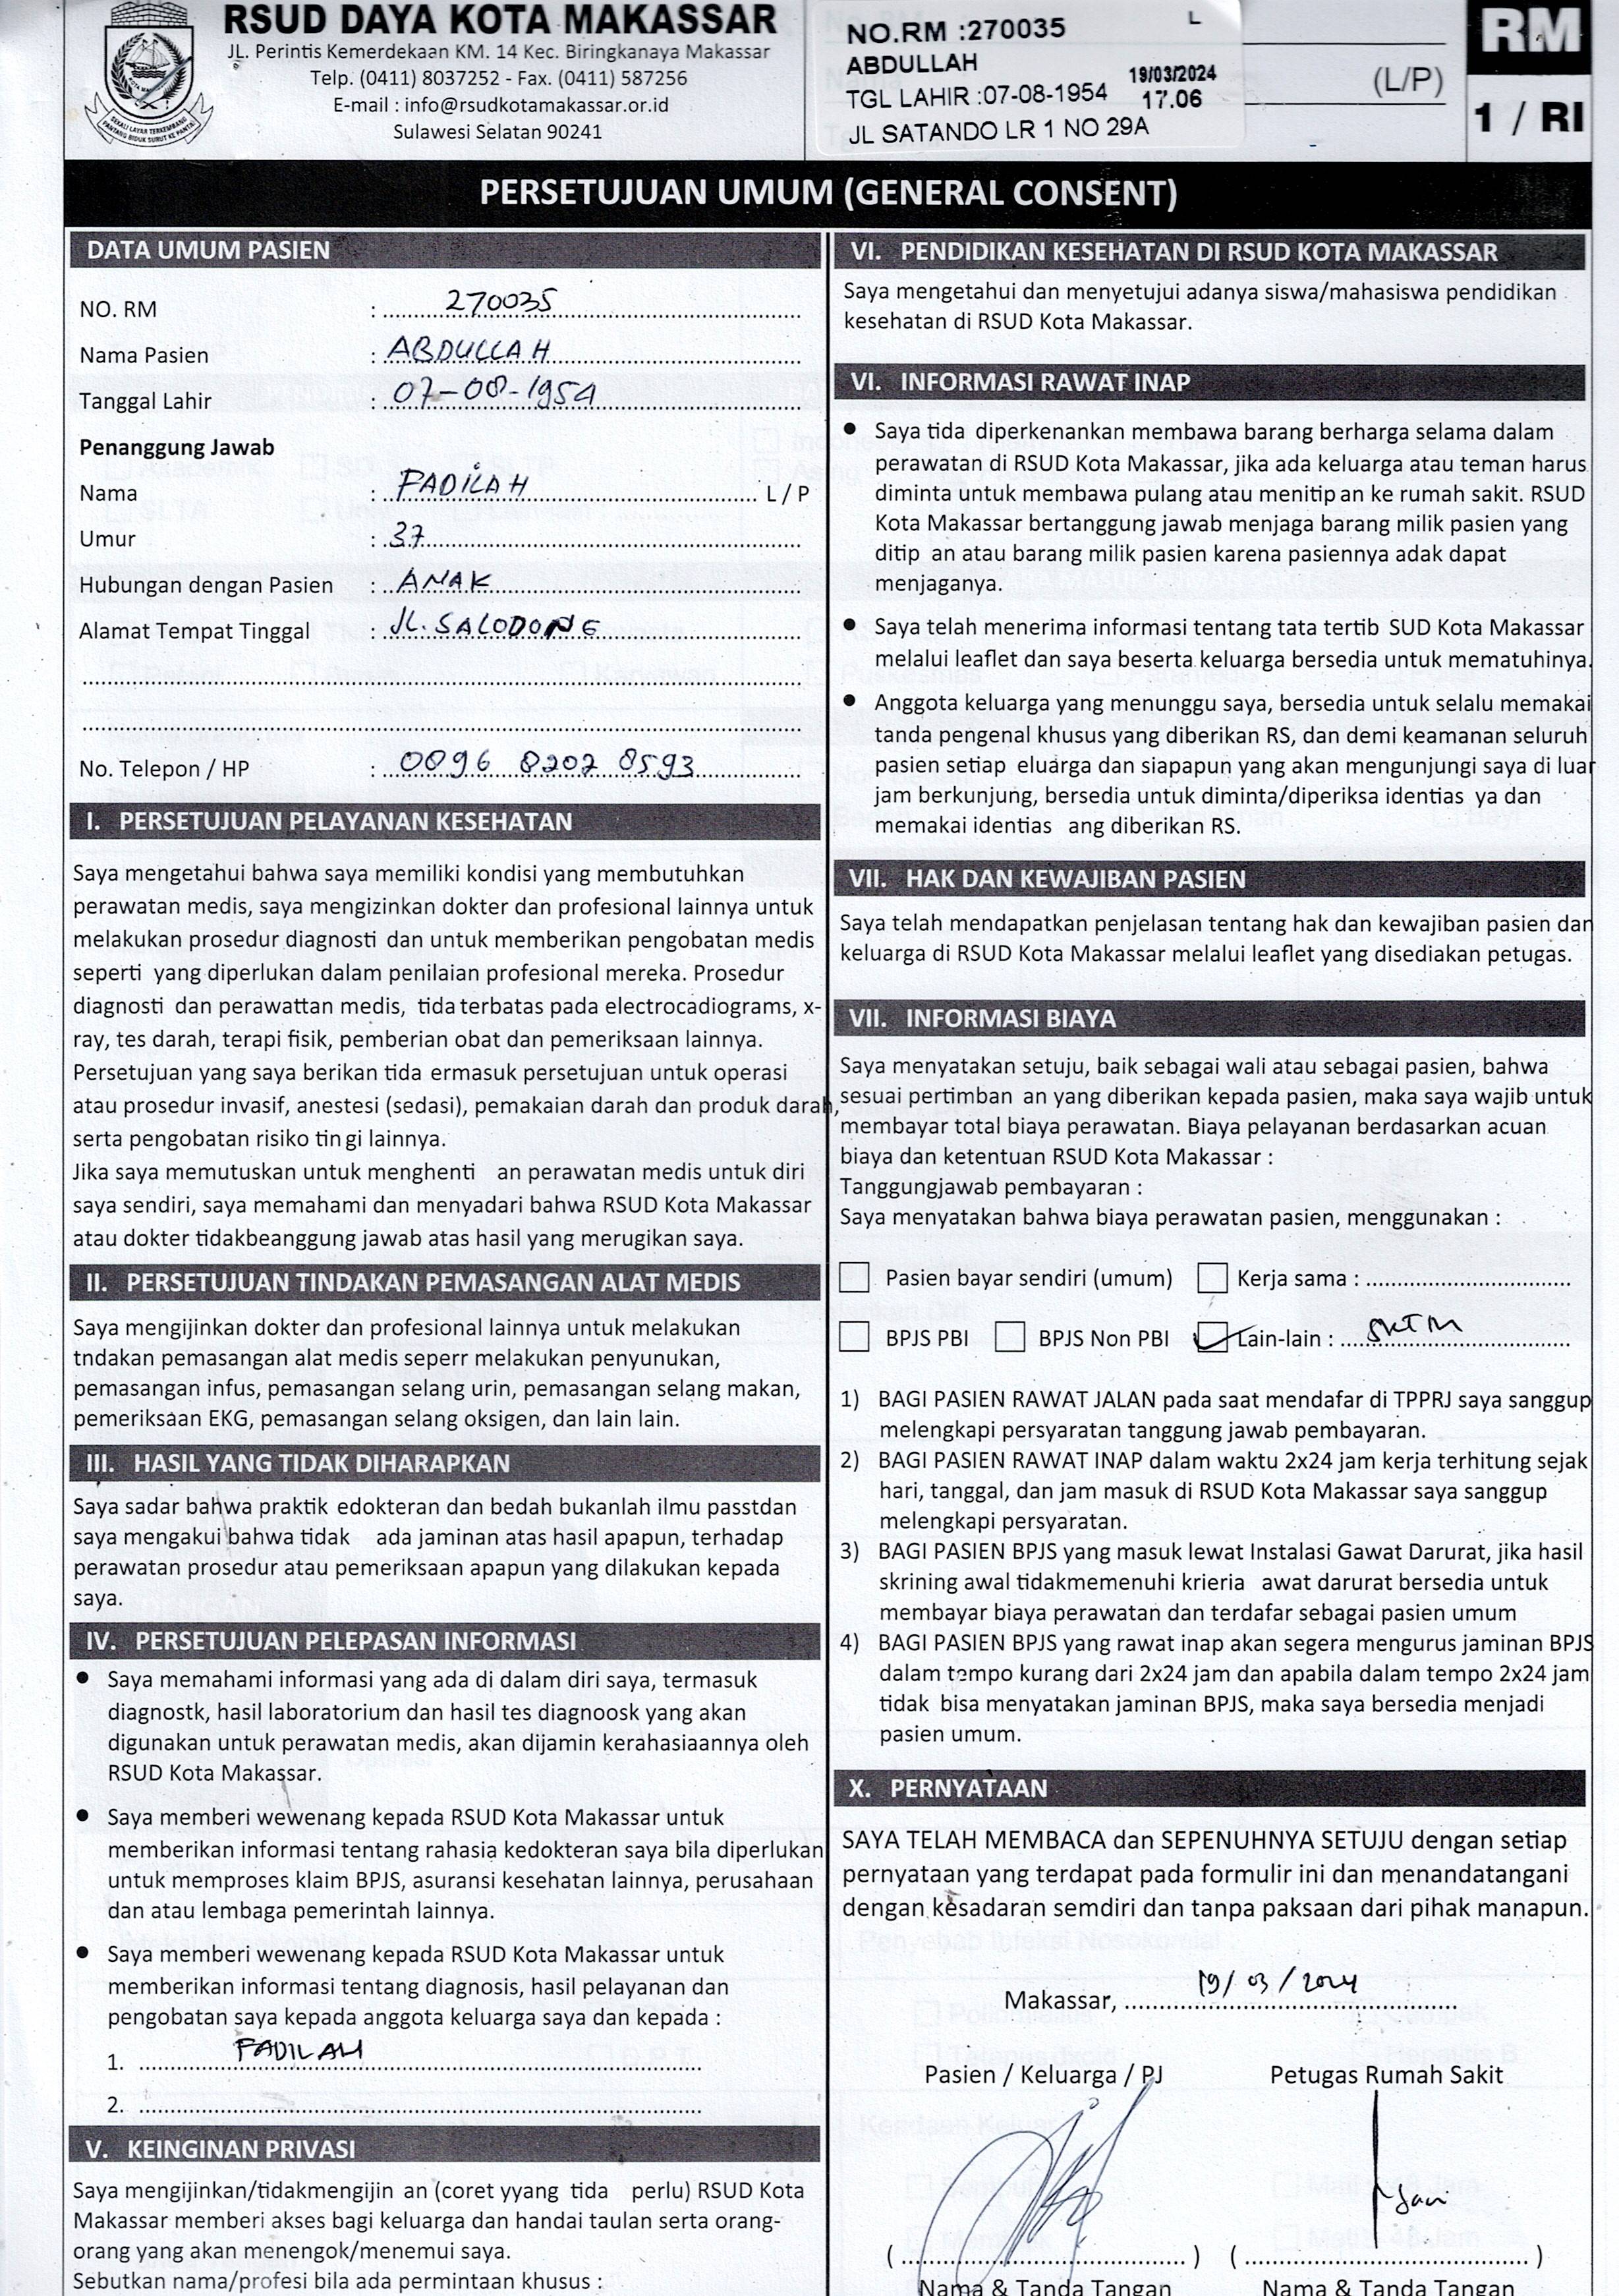 RSUD DAYA KOTA MAKASSAR
JL. Perintis Kemerdekaan KM. 14 Kec. Biringkanaya Makassar
Telp. (0411) 8037252 - Fax. (0411) 587256
E-mail : info@rsudkotamakassar.or.id
Sulawesi Selatan 90241
NO.RM :270035 L
ABDULLAH
TGL LAHIR :07-08-1954
19/03/2024
17.06
JL SATANDO LR 1 NO 29A
(L/P)
RM
1 / RI
PERSETUJUAN UMUM (GENERAL CONSENT)
DATA UMUM PASIEN
NO. RM : 270035
Nama Pasien : ABDULLAH
Tanggal Lahir : 07-08-1954
Penanggung Jawab
Nama : FADILAH L / P
Umur : 37
Hubungan dengan Pasien : ANAK
Alamat Tempat Tinggal : JL. SALODONG
No. Telepon / HP : 0896 8202 8593
I. PERSETUJUAN PELAYANAN KESEHATAN
Saya mengetahui bahwa saya memiliki kondisi yang membutuhkan
perawatan medis, saya mengizinkan dokter dan profesional lainnya untuk
melakukan prosedur diagnosti dan untuk memberikan pengobatan medis
seperti yang diperlukan dalam penilaian profesional mereka. Prosedur
diagnosti dan perawattan medis, tida terbatas pada electrocadiograms, x-
ray, tes darah, terapi fisik, pemberian obat dan pemeriksaan lainnya.
Persetujuan yang saya berikan tida ermasuk persetujuan untuk operasi
atau prosedur invasif, anestesi (sedasi), pemakaian darah dan produk darah,
serta pengobatan risiko tin gi lainnya.
Jika saya memutuskan untuk menghenti an perawatan medis untuk diri
saya sendiri, saya memahami dan menyadari bahwa RSUD Kota Makassar
atau dokter tidakbeanggung jawab atas hasil yang merugikan saya.
II. PERSETUJUAN TINDAKAN PEMASANGAN ALAT MEDIS
Saya mengijinkan dokter dan profesional lainnya untuk melakukan
tndakan pemasangan alat medis seperr melakukan penyunukan,
pemasangan infus, pemasangan selang urin, pemasangan selang makan,
pemeriksaan EKG, pemasangan selang oksigen, dan lain lain.
III. HASIL YANG TIDAK DIHARAPKAN
Saya sadar bahwa praktik edokteran dan bedah bukanlah ilmu passtdan
saya mengakui bahwa tidak ada jaminan atas hasil apapun, terhadap
perawatan prosedur atau pemeriksaan apapun yang dilakukan kepada
saya.
IV. PERSETUJUAN PELEPASAN INFORMASI
● Saya memahami informasi yang ada di dalam diri saya, termasuk
diagnostk, hasil laboratorium dan hasil tes diagnoosk yang akan
digunakan untuk perawatan medis, akan dijamin kerahasiaannya oleh
RSUD Kota Makassar.
● Saya memberi wewenang kepada RSUD Kota Makassar untuk
memberikan informasi tentang rahasia kedokteran saya bila diperlukan
untuk memproses klaim BPJS, asuransi kesehatan lainnya, perusahaan
dan atau lembaga pemerintah lainnya.
● Saya memberi wewenang kepada RSUD Kota Makassar untuk
memberikan informasi tentang diagnosis, hasil pelayanan dan
pengobatan saya kepada anggota keluarga saya dan kepada :
1. FADILAH
2.
V. KEINGINAN PRIVASI
Saya mengijinkan/tidakmengijin an (coret yyang tida perlu) RSUD Kota
Makassar memberi akses bagi keluarga dan handai taulan serta orang-
orang yang akan menengok/menemui saya.
Sebutkan nama/profesi bila ada permintaan khusus :
VI. PENDIDIKAN KESEHATAN DI RSUD KOTA MAKASSAR
Saya mengetahui dan menyetujui adanya siswa/mahasiswa pendidikan
kesehatan di RSUD Kota Makassar.
VI. INFORMASI RAWAT INAP
● Saya tida diperkenankan membawa barang berharga selama dalam
perawatan di RSUD Kota Makassar, jika ada keluarga atau teman harus
diminta untuk membawa pulang atau menitip an ke rumah sakit. RSUD
Kota Makassar bertanggung jawab menjaga barang milik pasien yang
ditip an atau barang milik pasien karena pasiennya adak dapat
menjaganya.
● Saya telah menerima informasi tentang tata tertib SUD Kota Makassar
melalui leaflet dan saya beserta keluarga bersedia untuk mematuhinya.
● Anggota keluarga yang menunggu saya, bersedia untuk selalu memakai
tanda pengenal khusus yang diberikan RS, dan demi keamanan seluruh
pasien setiap eluarga dan siapapun yang akan mengunjungi saya di luar
jam berkunjung, bersedia untuk diminta/diperiksa identias ya dan
memakai identias ang diberikan RS.
VII. HAK DAN KEWAJIBAN PASIEN
Saya telah mendapatkan penjelasan tentang hak dan kewajiban pasien dan
keluarga di RSUD Kota Makassar melalui leaflet yang disediakan petugas.
VII. INFORMASI BIAYA
Saya menyatakan setuju, baik sebagai wali atau sebagai pasien, bahwa
sesuai pertimban an yang diberikan kepada pasien, maka saya wajib untuk
membayar total biaya perawatan. Biaya pelayanan berdasarkan acuan
biaya dan ketentuan RSUD Kota Makassar :
Tanggungjawab pembayaran :
Saya menyatakan bahwa biaya perawatan pasien, menggunakan :
Pasien bayar sendiri (umum) Kerja sama :
BPJS PBI BPJS Non PBI Lain-lain : SKTM
1) BAGI PASIEN RAWAT JALAN pada saat mendafar di TPPRJ saya sanggup
melengkapi persyaratan tanggung jawab pembayaran.
2) BAGI PASIEN RAWAT INAP dalam waktu 2x24 jam kerja terhitung sejak
hari, tanggal, dan jam masuk di RSUD Kota Makassar saya sanggup
melengkapi persyaratan.
3) BAGI PASIEN BPJS yang masuk lewat Instalasi Gawat Darurat, jika hasil
skrining awal tidakmemenuhi krieria awat darurat bersedia untuk
membayar biaya perawatan dan terdafar sebagai pasien umum
4) BAGI PASIEN BPJS yang rawat inap akan segera mengurus jaminan BPJS
dalam tempo kurang dari 2x24 jam dan apabila dalam tempo 2x24 jam
tidak bisa menyatakan jaminan BPJS, maka saya bersedia menjadi
pasien umum.
X. PERNYATAAN
SAYA TELAH MEMBACA dan SEPENUHNYA SETUJU dengan setiap
pernyataan yang terdapat pada formulir ini dan menandatangani
dengan kesadaran semdiri dan tanpa paksaan dari pihak manapun.
Makassar, 19/03/2024
Pasien / Keluarga / PJ Petugas Rumah Sakit
( ) ( )
Nama & Tanda Tangan Nama & Tanda Tangan